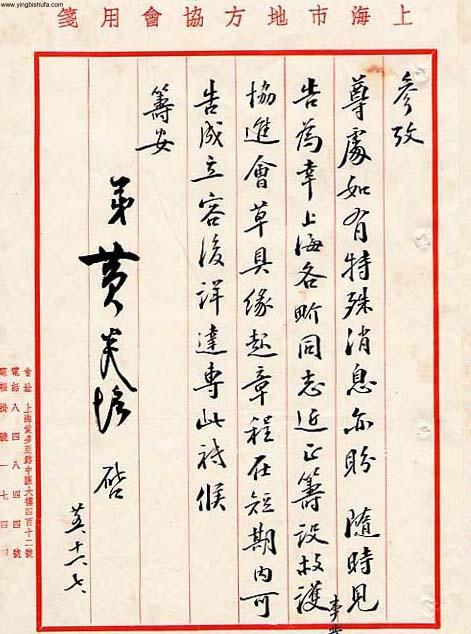 www.yingbishufa.com
上海市地方協會用箋
參攷
尊處如有特殊消息亦盼 隨時見
告為幸上海各界同志近正籌設救護事業
協進會草具緣起章程在短期內可
告成立容後詳達專此祗候
籌安
弟黃炎培 啓
會址 上海愛多亞路中匯大樓四百十二號
電話 八四八四四號
電報掛號 一七四